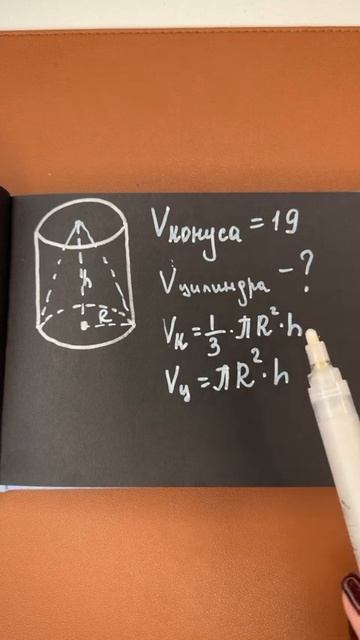 Vконуса = 19
Vцилиндра - ?
Vк = 1/3 · πR² · h
Vц = πR² · h
h
R